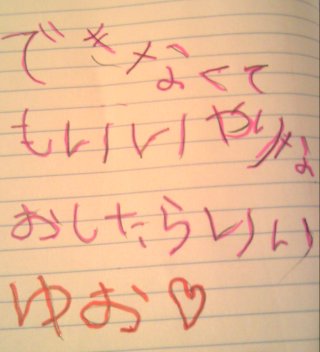 できなくて
もいいやりな
おしたらいい
ゆお♡